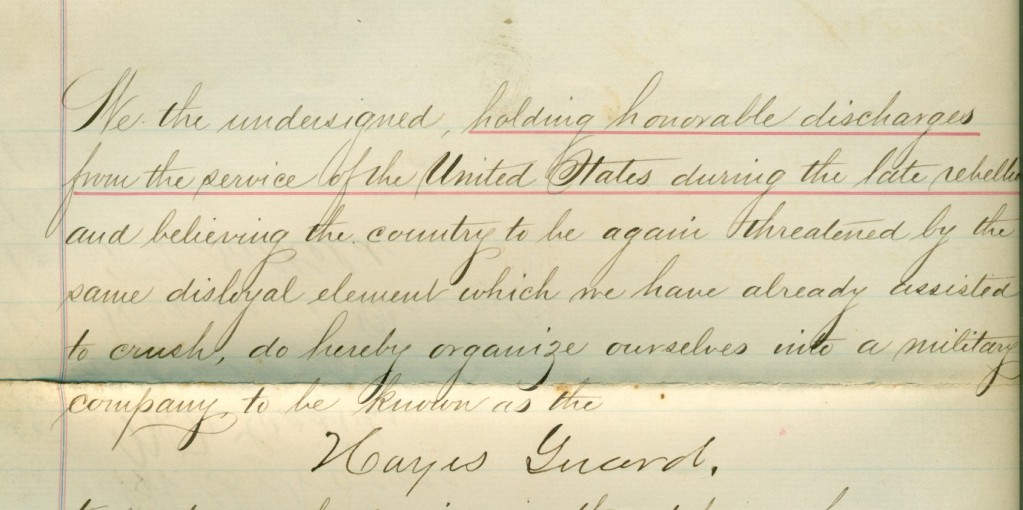 We the undersigned, holding honorable discharges
from the service of the United States during the late rebellio
and believing the country to be again threatened by the
same disloyal element which we have already assisted
to crush, do hereby organize ourselves into a military
company, to be known as the
Hayes Guard.